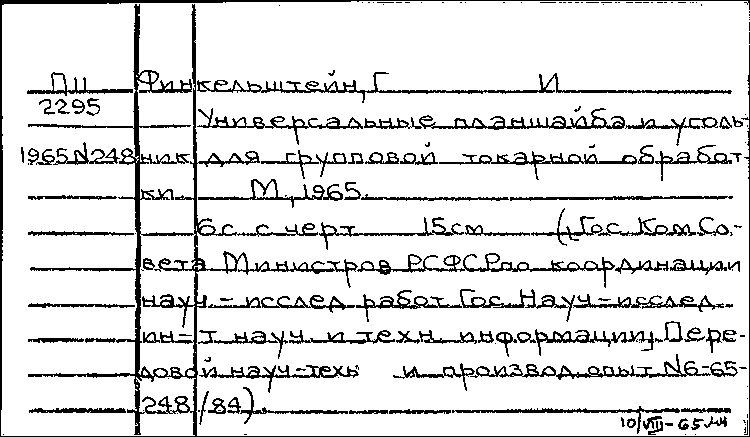 ПII Финкельштейн, Г И
2295
Универсальные планшайба и уголь-
1965 N248 ник для групповой токарной обработ
ки. М., 1965.
6 с с черт 15 см (Гос. Ком. Со-
вета Министров РСФСР по координации
науч-исслед работ Гос. Науч-исслед
ин-т науч и техн информации Пере-
довой науч-техн и производ. опыт N6-65-
248/84).
10/VIII-65